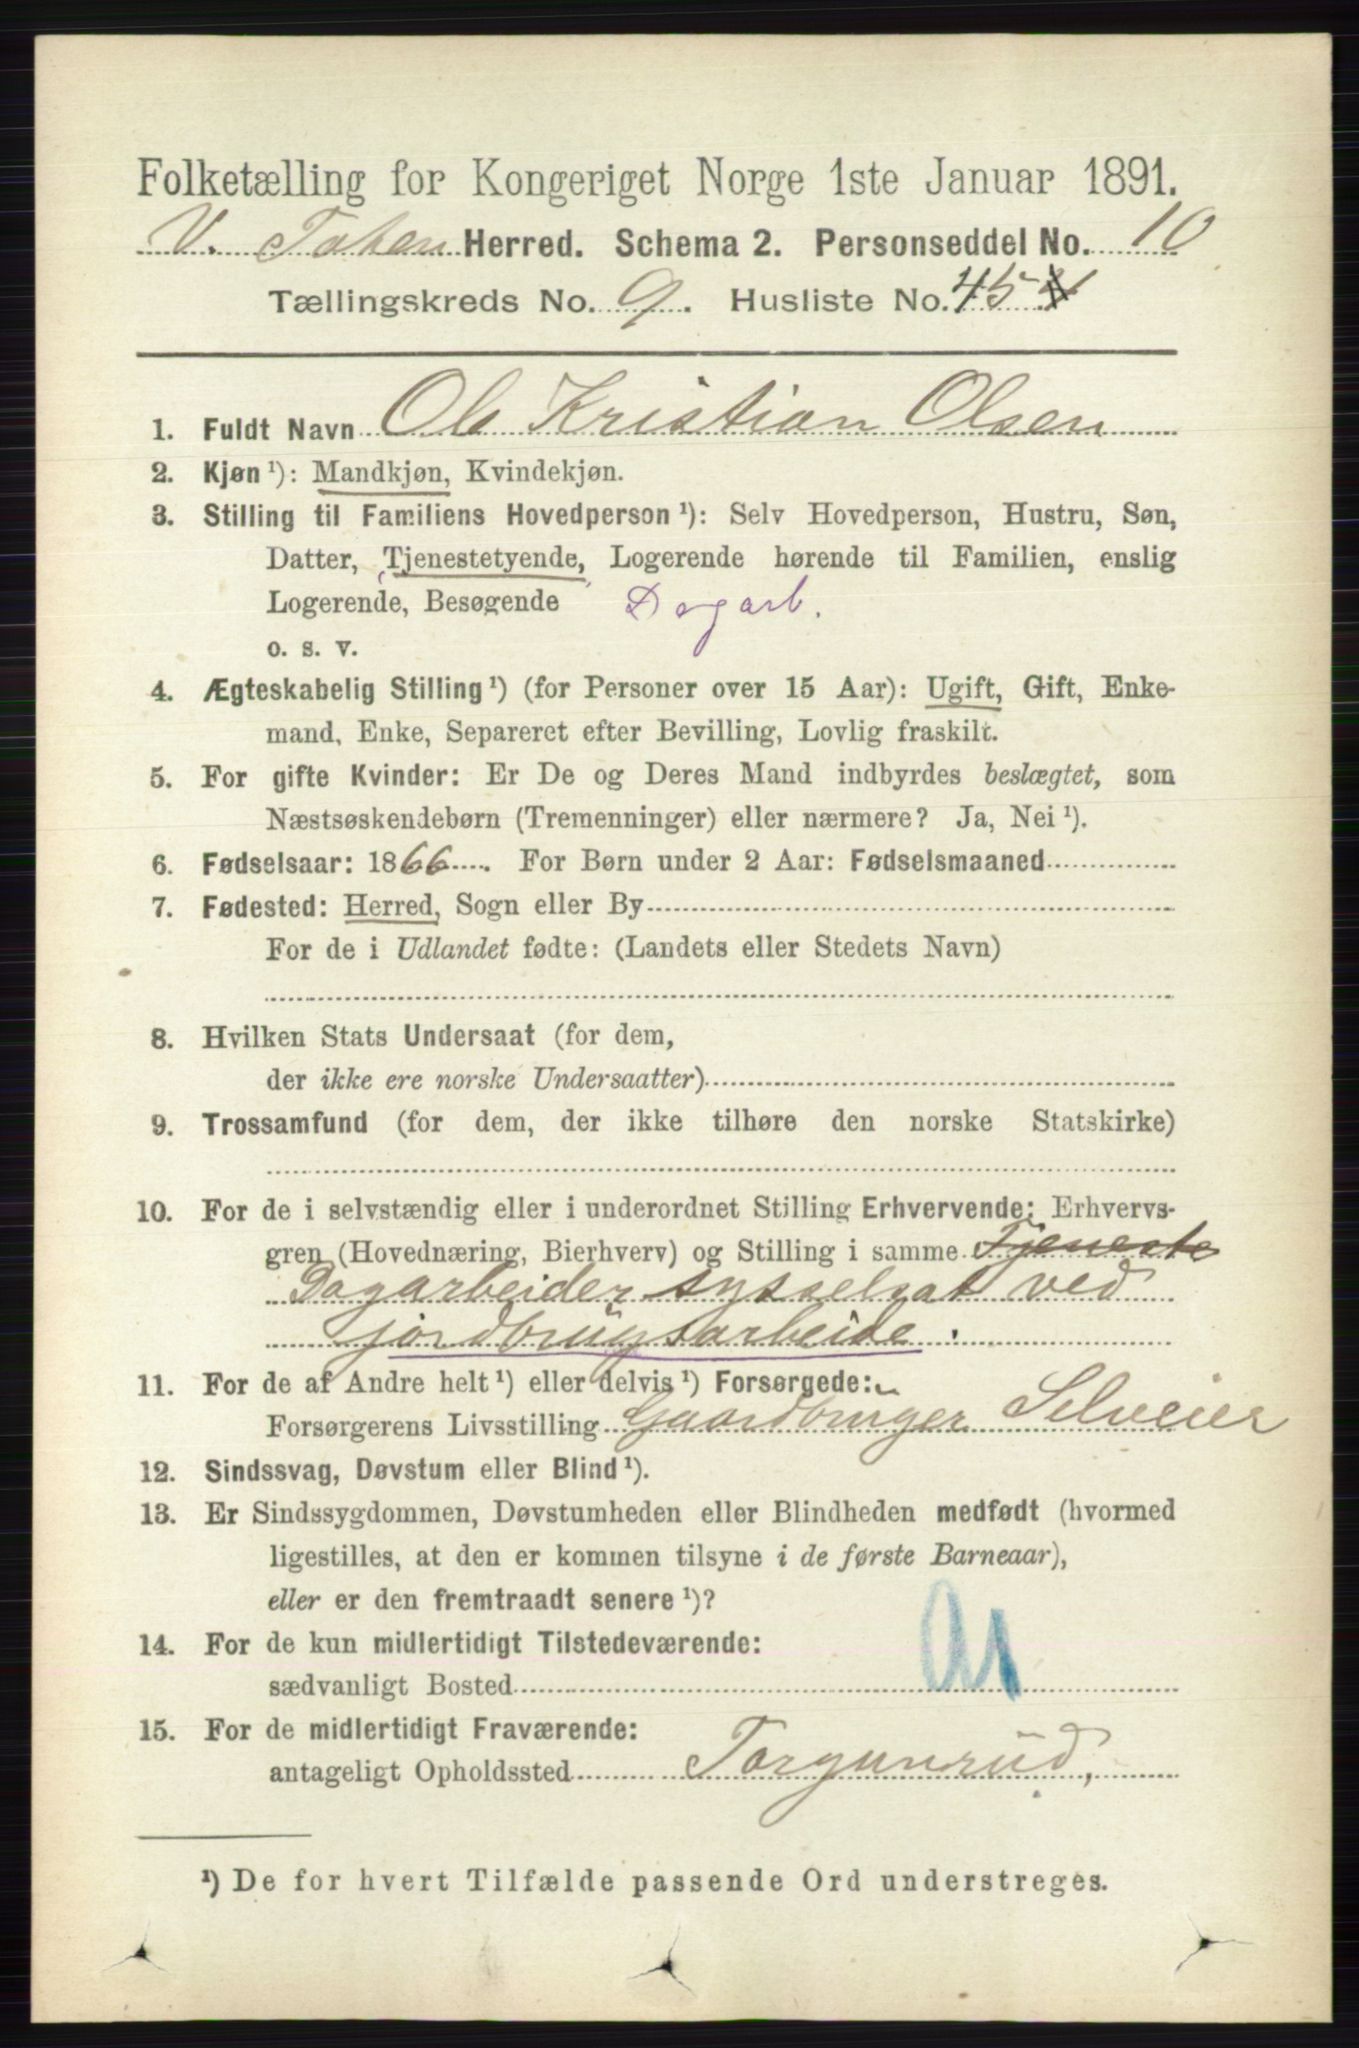 Folketælling for Kongeriget Norge 1ste Januar 1891.
V. Toten Herred. Schema 2. Personseddel No. 10
Tællingskreds No. 9. Husliste No. 45
1. Fuldt Navn Ole Kristian Olsen
2. Kjøn ¹): Mandkjøn, Kvindekjøn.
3. Stilling til Familiens Hovedperson ¹): Selv Hovedperson, Hustru, Søn,
Datter, Tjenestetyende, Logerende hørende til Familien, enslig
Logerende, Besøgende Dagarb.
o. s. v.
4. Ægteskabelig Stilling ¹) (for Personer over 15 Aar): Ugift, Gift, Enke-
mand, Enke, Separeret efter Bevilling, Lovlig fraskilt.
5. For gifte Kvinder: Er De og Deres Mand indbyrdes beslægtet, som
Næstsøskendebørn (Tremenninger) eller nærmere? Ja, Nei ¹).
6. Fødselsaar: 1866. For Børn under 2 Aar: Fødselsmaaned
7. Fødested: Herred, Sogn eller By
For de i Udlandet fødte: (Landets eller Stedets Navn)
8. Hvilken Stats Undersaat (for dem,
der ikke ere norske Undersaatter)
9. Trossamfund (for dem, der ikke tilhøre den norske Statskirke)
10. For de i selvstændig eller i underordnet Stilling Erhvervende: Erhvervs-
gren (Hovednæring, Bierhverv) og Stilling i samme Tjeneste
Dagarbeider sysselsat ved
jordbrugsarbeide.
11. For de af Andre helt ¹) eller delvis ¹) Forsørgede:
Forsørgerens Livsstilling Gaardbruger Selveier
12. Sindssvag, Døvstum eller Blind ¹).
13. Er Sindssygdommen, Døvstumheden eller Blindheden medfødt (hvormed
ligestilles, at den er kommen tilsyne i de første Barneaar),
eller er den fremtraadt senere ¹)?
14. For de kun midlertidigt Tilstedeværende:
sædvanligt Bosted
15. For de midlertidigt Fraværende:
antageligt Opholdssted Torgunrud,
¹) De for hvert Tilfælde passende Ord understreges.